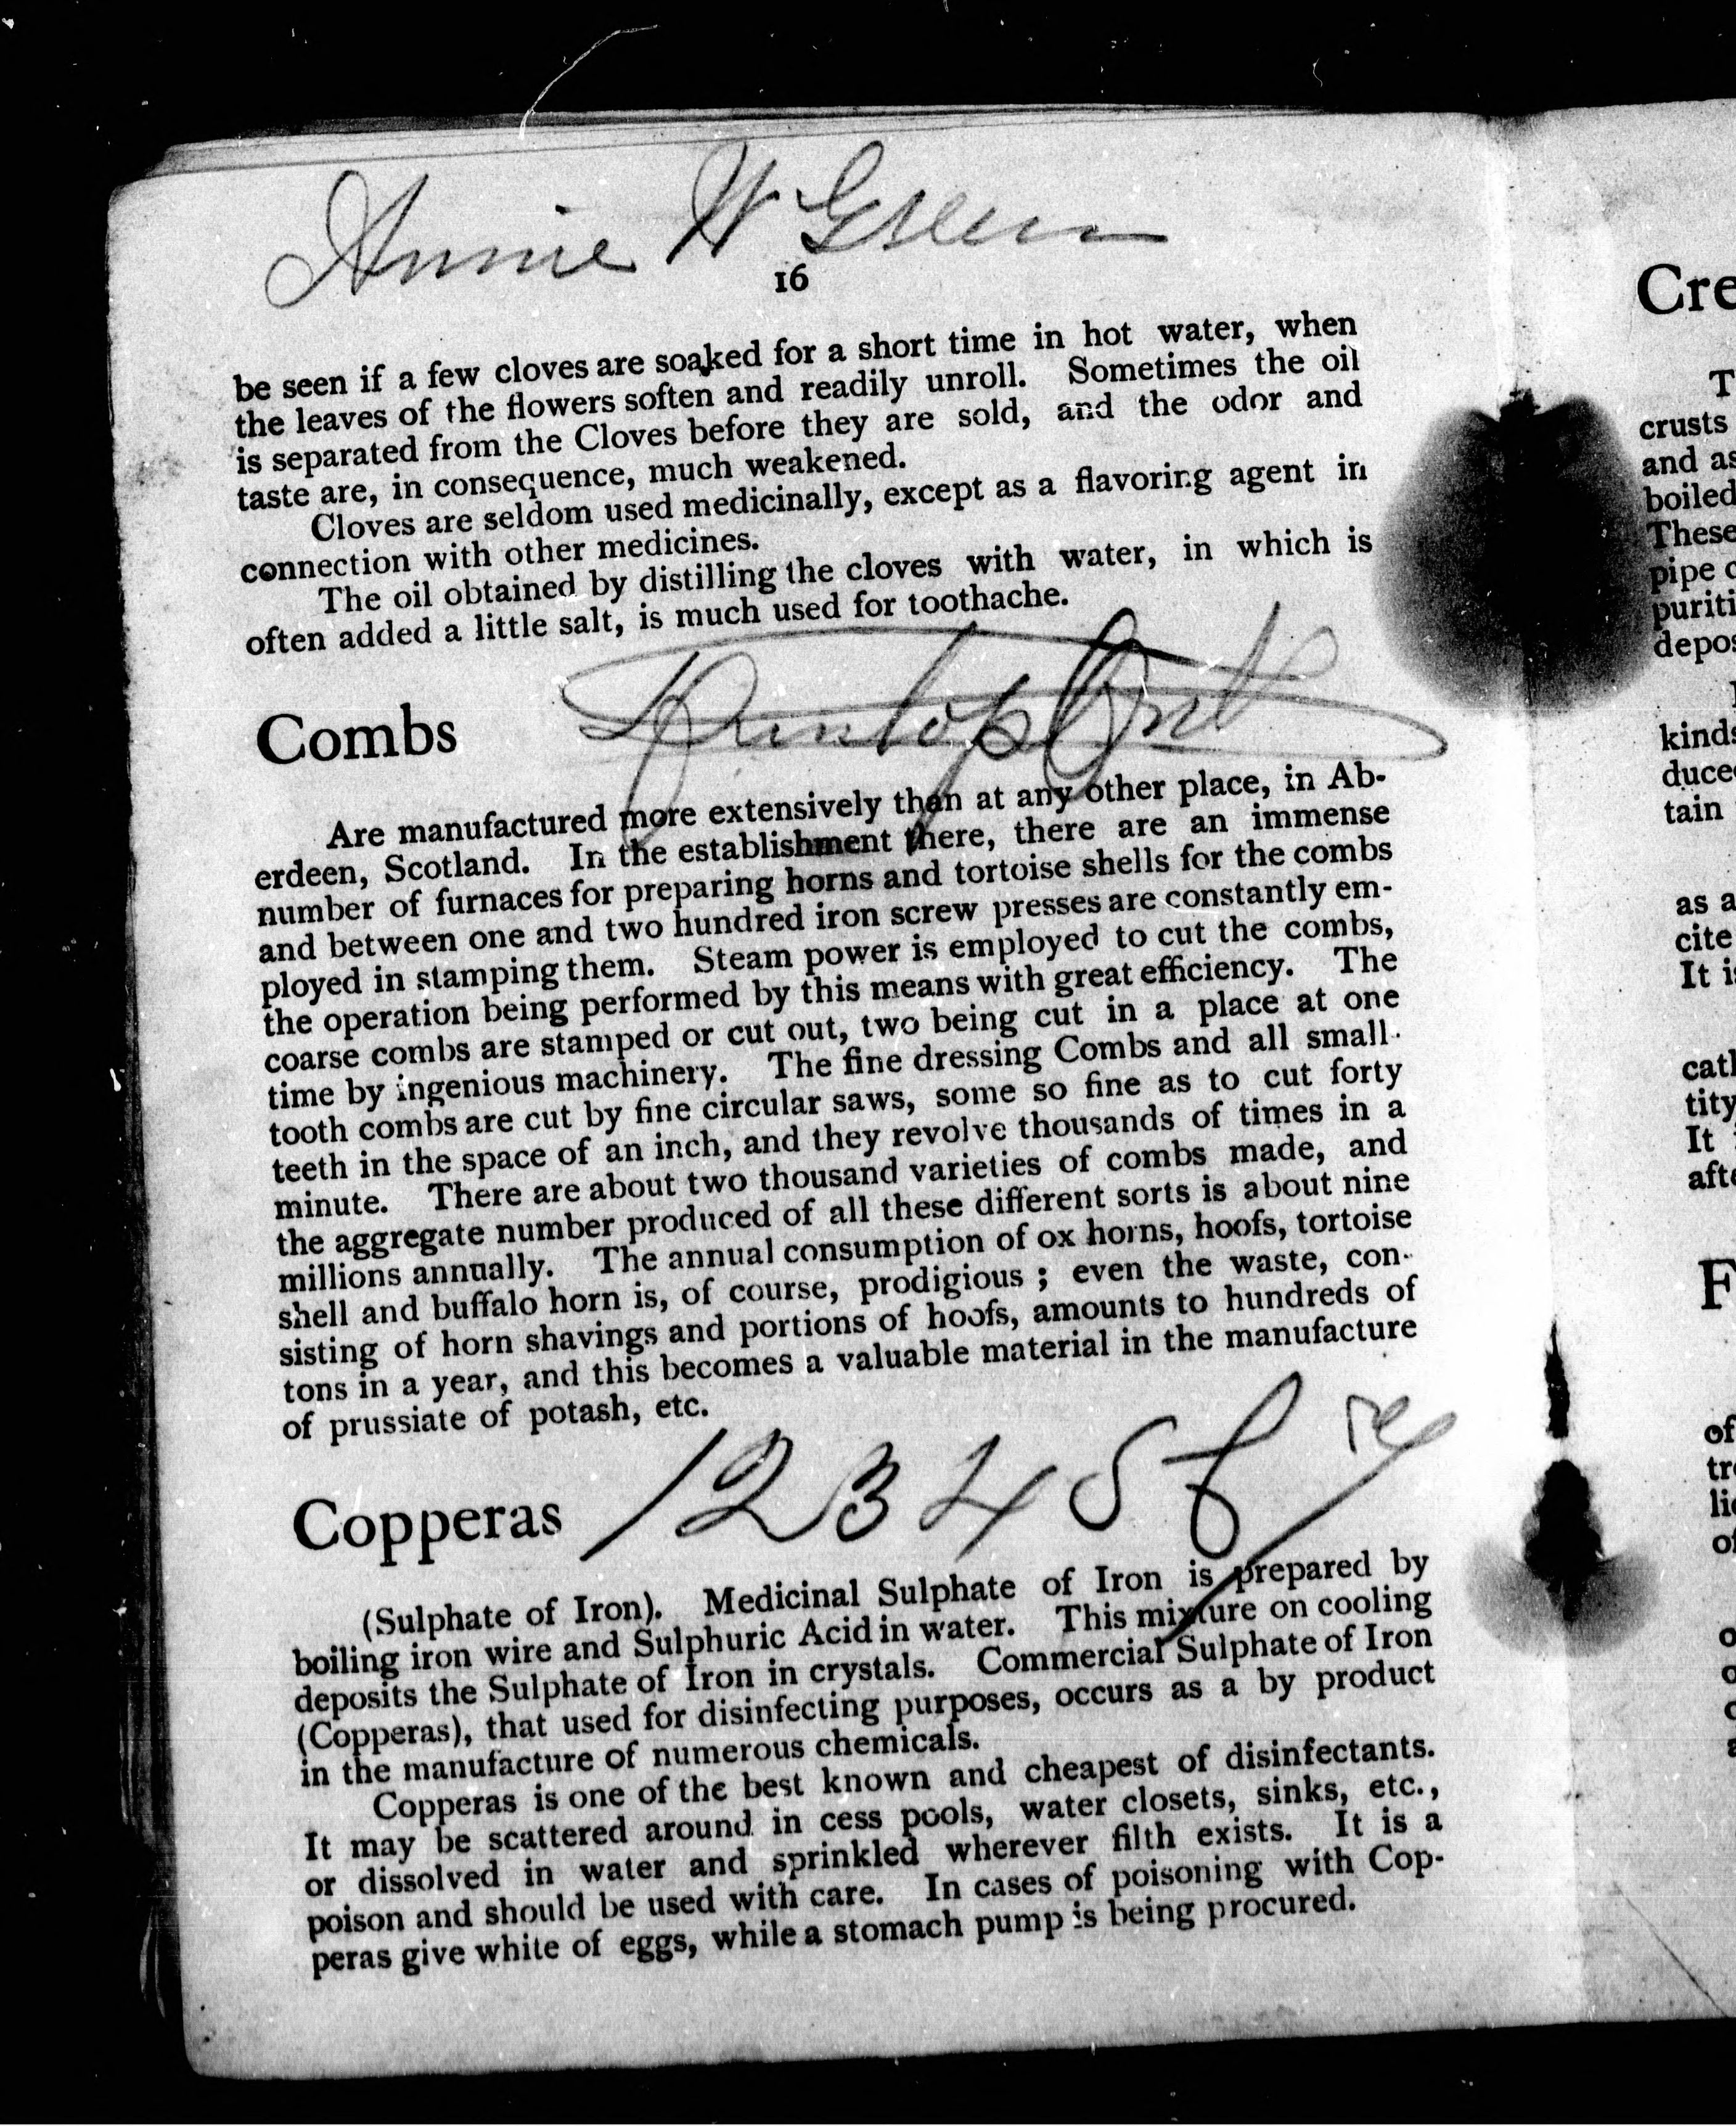 Annie W Green
16
be seen if a few cloves are soaked for a short time in hot water, when
the leaves of the flowers soften and readily unroll. Sometimes the oil
is separated from the Cloves before they are sold, and the odor and
taste are, in consequence, much weakened.
Cloves are seldom used medicinally, except as a flavoring agent in
connection with other medicines.
The oil obtained by distilling the cloves with water, in which is
often added a little salt, is much used for toothache.
Dunlop Ont
Combs
Are manufactured more extensively than at any other place, in Ab-
erdeen, Scotland. In the establishment there, there are an immense
number of furnaces for preparing horns and tortoise shells for the combs
and between one and two hundred iron screw presses are constantly em-
ployed in stamping them. Steam power is employed to cut the combs,
the operation being performed by this means with great efficiency. The
coarse combs are stamped or cut out, two being cut in a place at one
time by ingenious machinery. The fine dressing Combs and all small-
tooth combs are cut by fine circular saws, some so fine as to cut forty
teeth in the space of an inch, and they revolve thousands of times in a
minute. There are about two thousand varieties of combs made, and
the aggregate number produced of all these different sorts is about nine
millions annually. The annual consumption of ox horns, hoofs, tortoise
shell and buffalo horn is, of course, prodigious ; even the waste, con-
sisting of horn shavings and portions of hoofs, amounts to hundreds of
tons in a year, and this becomes a valuable material in the manufacture
of prussiate of potash, etc.
Copperas 1 2 3 4 5
(Sulphate of Iron). Medicinal Sulphate of Iron is prepared by
boiling iron wire and Sulphuric Acid in water. This mixture on cooling
deposits the Sulphate of Iron in crystals. Commercial Sulphate of Iron
(Copperas), that used for disinfecting purposes, occurs as a by product
in the manufacture of numerous chemicals.
Copperas is one of the best known and cheapest of disinfectants.
It may be scattered around in cess pools, water closets, sinks, etc.,
or dissolved in water and sprinkled wherever filth exists. It is a
poison and should be used with care. In cases of poisoning with Cop-
peras give white of eggs, while a stomach pump is being procured.
Cre
T
crusts
and as
boiled
These
pipe
puriti
depos
kinds
duce
tain
as a
cite
It is
cath
tity
It
afte
F
of
tr